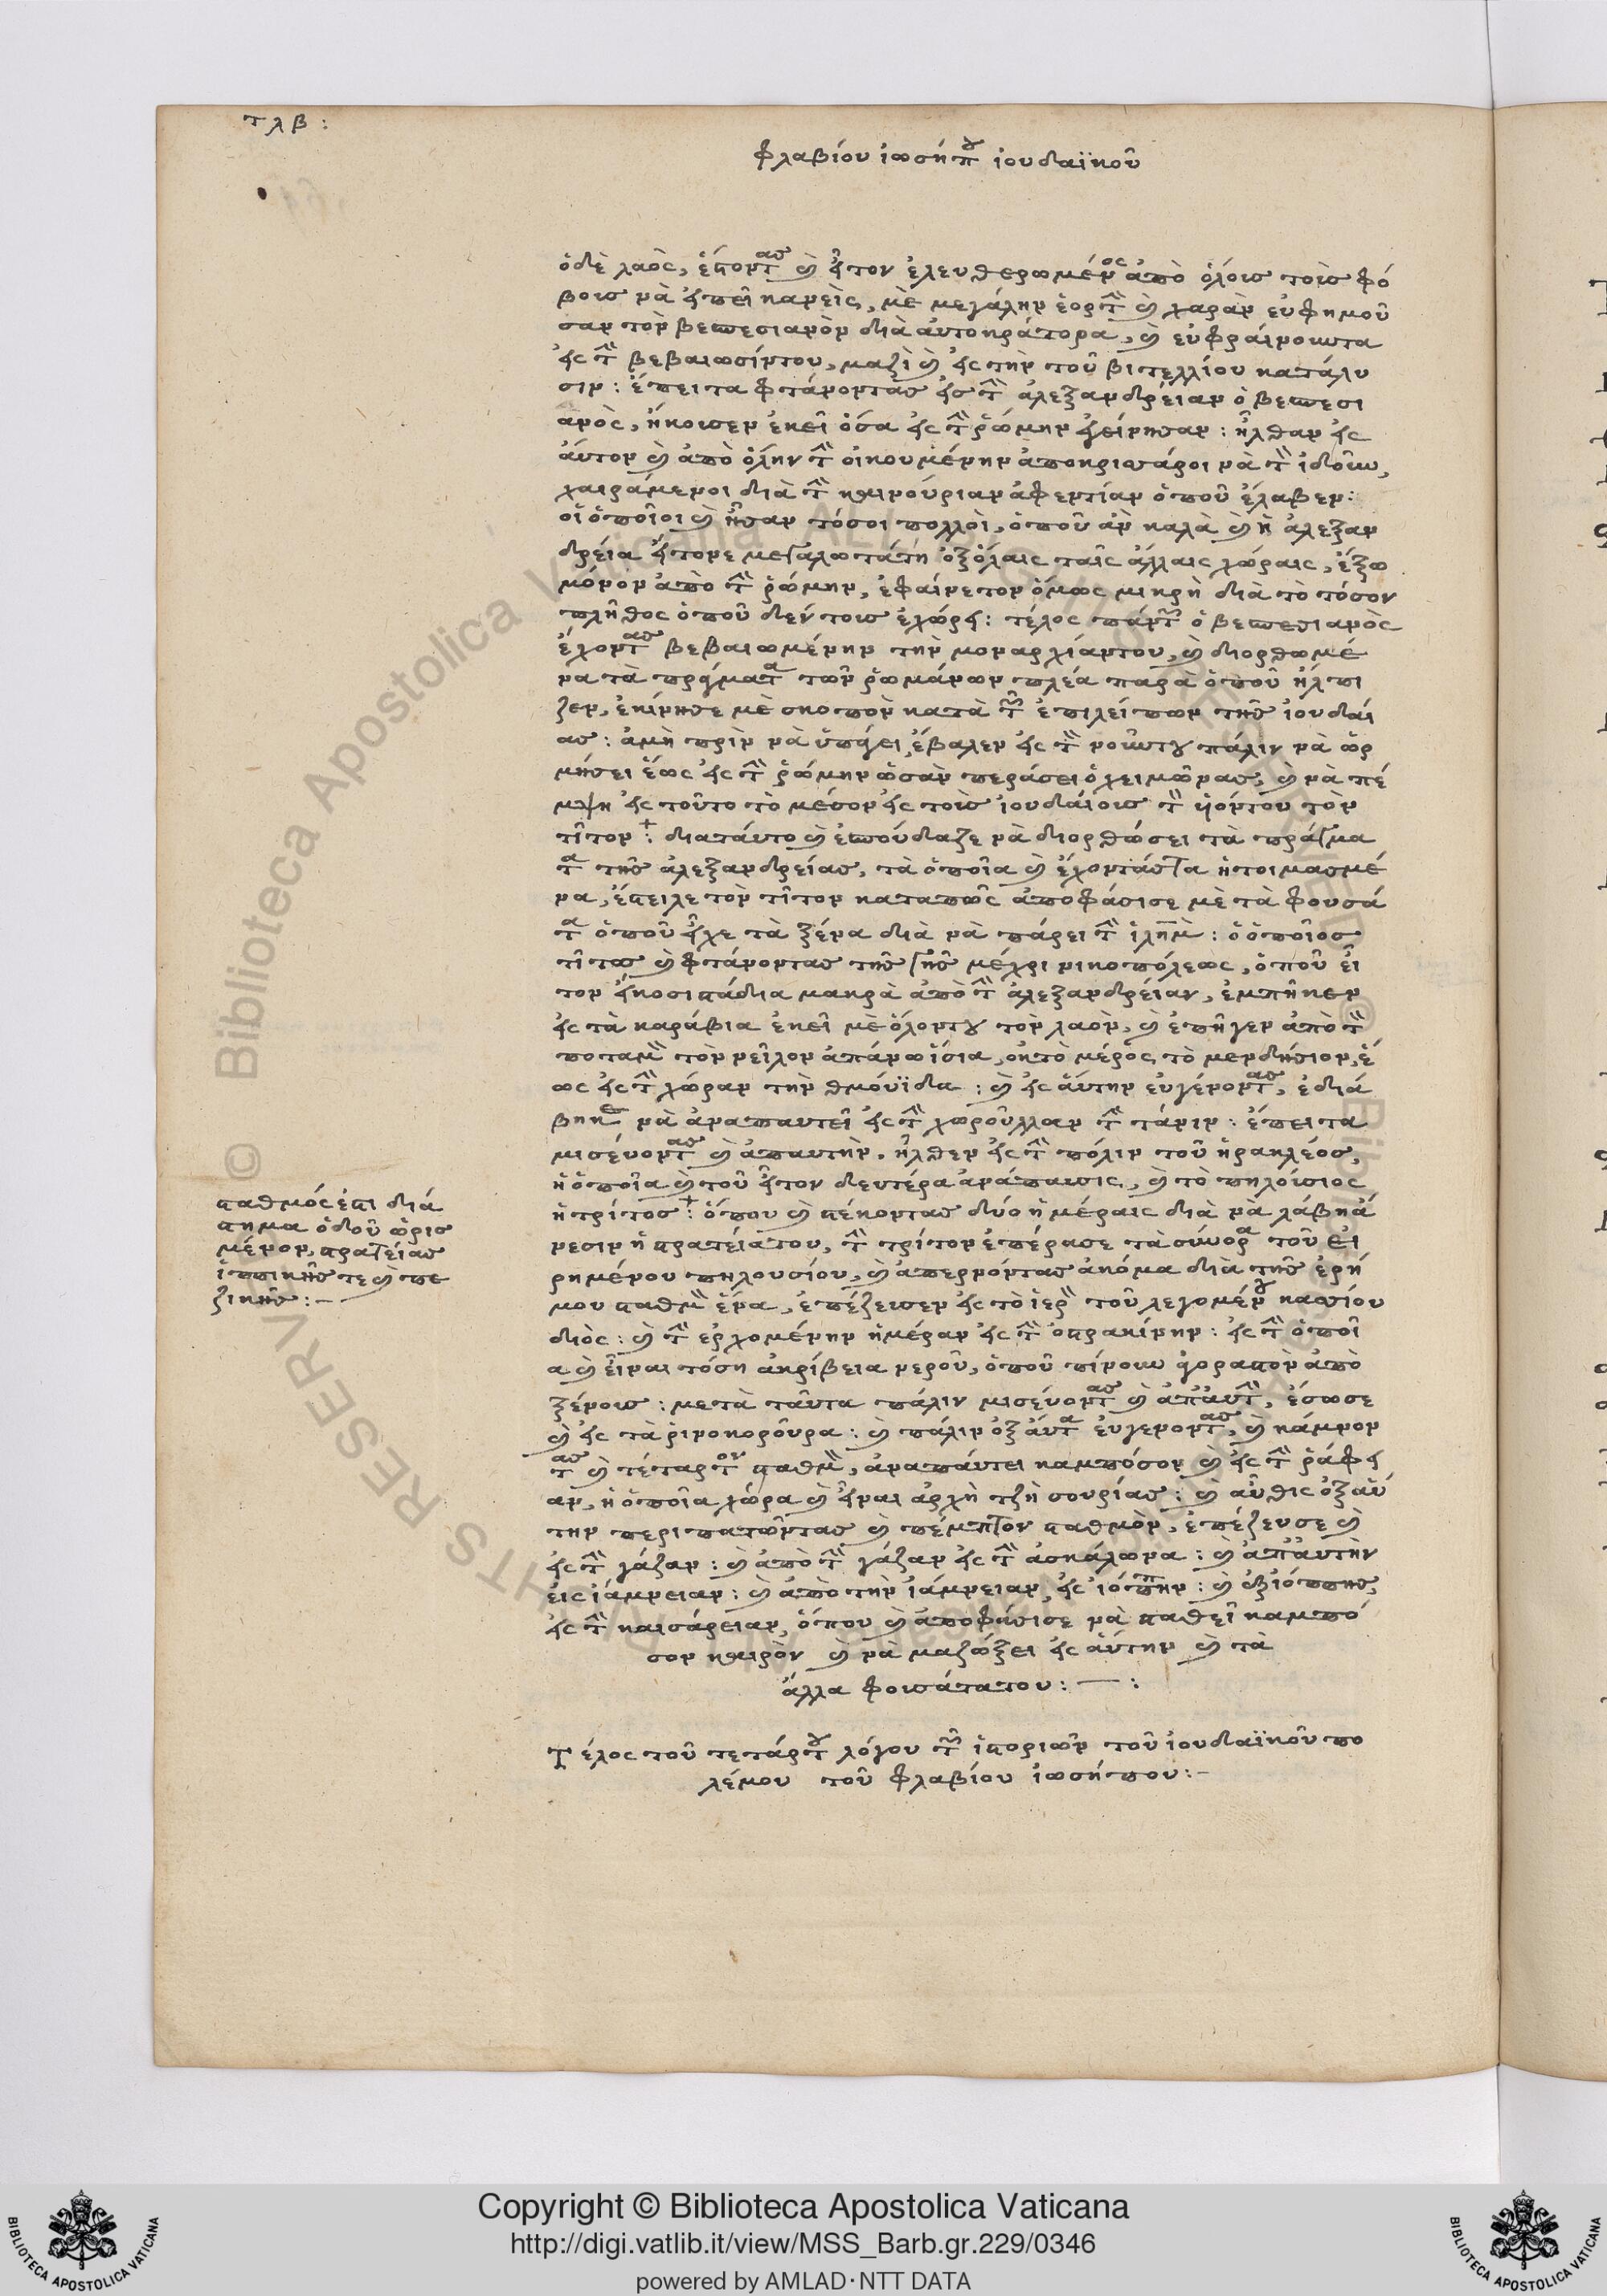 τλβ:
φλαβίου ἰωσήπου ἰουδαϊκοῦ
ὁδὲ λαὸς, ἔστοντας καὶ ἦτον ἐλευθερωμένος ἀπὸ ὅλους τοὺς φό
βους νὰ εἰπεῖ κανεὶς, μὲ μεγάλην ἑορτὴν καὶ χαρὰν εὐφημοῦ
σαν τὸν βεσπεσιανὸν διὰ ἀυτοκράτορα, καὶ εὐφραίνουντα
εἰς τὴν βεβαιωσίντου, μαζὶ καὶ εἰς τὴν τοῦ βιτελλίου κατάλυ
σιν: ἔπειτα φτάνοντας εἰς τὴν ἀλεξανδρέιαν ὁ βεσπεσι
ανὸς, ἤκουσεν ἐκεῖ ὅσα εἰς τὴν ῥώμην ἐγείνησαν: ἦλθαν εἰς
ἀύτον καὶ ἀπὸ ὅλην τὴν οἰκουμένην ἀποκρισιάροι νὰ τὴν ἰδοῦν,
χαιράμενοι διὰ τὴν καινούριαν ἀφεντίαν ὁποῦ ἔλαβεν:
οἱ ὁποῖοι καὶ ἦσαν τόσοι πολλοὶ, ὁποῦ ἂν καλὰ καὶ ἡ ἀλεξαν
δρέια ἦτονε μεγαλωτάτη ὀξόλαις ταῖς ἄλλαις χώραις, ἔξω
μόνον ἀπὸ τὴν ῥώμην, ἐφαίνετον ὅμως μικρὴ διὰ τὸ τόσον
πλῆθος ὁποῦ δέν τους ἐχώρει: τέλος πάντων ὁ βεσπεσιανὸς
ἔχοντας βεβαιωμένην τὴν μοναρχίαντου, καὶ διορθωμέ
να τὰ πράγματα τῶν ῥωμάνων πλέα παρὰ ὁποῦ ἤλπι
ζεν, ἐκίνησε μὲ σκοπὸν κατὰ τῶν ἐπιλείπων τῆς ἰουδαί
ας: ἀμὴ πρὶν νὰ ὑπάγει, ἔβαλεν εἰς τὸν νοῦντου πάλιν νὰ ὁρ
μήσει ἕως εἰς τὴν ῥώμην ὡσὰν περάσει ὁ χειμῶνας, καὶ νὰ πέ
μψη εἰς τοῦτο τὸ μέσον εἰς τοὺς ἰουδαίους τὸν ὑιόντου τὸν
τῖτον: διατάυτο καὶ ἐσπούδαζε νὰ διορθώσει τὰ πράγμα
τα τῆς ἀλεξανδρείας, τὰ ὁποῖα καὶ ἔχοντάστα ἡτοιμασμέ
να, ἔστειλε τὸν τῖτον καταπῶς ἀποφάσισε μὲ τὰ φουσά
τα ὁποῦ εἶχε τὰ ξένα διὰ νὰ πάρει τὴν ἱλημ: ὁ ὁποῖος
τῖτος καὶ φτάνοντας τῆς γῆς μέχρι νικοπόλεως, ὁποῦ εἶ
τον εἴκοσι στάδια μακρὰ ἀπὸ τὴν ἀλεξανδρέιαν, ἐμπῆκεν
εἰς τὰ καράβια ἐκεῖ μὲ ὅλοντου τὸν λαὸν, καὶ ἐπῆγεν ἀπὸ τὸν
ποταμὸν τὸν νεῖλον ἀπάνω ἴσια, στὸ μέρος τὸ μενδήσιον, ἕ
ως εἰς τὴν χώραν τὴν θμόυϊδα: καὶ εἰς ἀύτην εὐγένοντας, ἐδιά
βηκε νὰ ἀναπαυτεῖ εἰς τὴν χωροῦλλαν τὴν τάνιν: ἔπειτα
μισέυοντας καὶ ἀπαυτὴν, ἦλθεν εἰς τὴν πόλιν τοῦ ἡρακλέος,
ἡ ὁποῖα καὶ τοῦ ἦτον δευτέρα ἀνάπαυσις, καὶ τὸ πηλούσιος
ἡ τρίτος: ὅπου καὶ στέκοντας δύο ἡμέραις διὰ νὰ λάβη ἄ
νεσιν ἡ στρατέιατου, τὴν τρίτον ἐπέρασε τὰ σύνορα τοῦ εἰ
ρημένου πηλουσίου, καὶ ἀπερνόντας ἀκόμα διὰ τῆς ἐρή
μου σταθμὸν ἕνα, ἐπέζευσεν εἰς τὸ ἱερὸν τοῦ λεγομένου κασίου
διὸς: καὶ τὴν ἐρχομένην ἡμέραν εἰς τὴν ὀστρακίνην: εἰς τὴν ὁποῖ
α καὶ εἶναι τόση ἀκρίβεια νεροῦ, ὁποῦ πίνουν ἀγοραστὸν ἀπὸ
ξένους: μετὰ ταῦτα πάλιν μισέυοντας καὶ ἀπαυτὴν, ἔσωσε
καὶ εἰς τὰ ῥινοκοροῦρα: καὶ πάλιν ὀξ ἀύτα εὐγενοντας, καὶ κάμνον
τας καὶ τέταρτον σταθμὸν, ἀναπάυτει καμπόσον καὶ εἰς τὴν ῥάφει
αν, ἡ ὁποῖα χώρα καὶ εἶναι ἀρχὴ τζὴ συυρίας: καὶ αὖθις ὀξ ἀύ
την περιπατῶντας καὶ πέμπτον σταθμὸν, ἐπέζευσε καὶ
εἰς τὴν γάζαν: καὶ ἀπὸ τὴν γάζαν εἰς τὴν ἀσκάλωνα: καὶ ἀπ'ἀυτὴν
εἰς ἰάμνειαν: καὶ ἀπὸ τὴν ἰάμνειαν, εἰς ἰόππην: καὶ ὀξ ἰόππης,
εἰς τὴν καισάρειαν, ὅπου καὶ ἀποφάσισε νὰ σταθεῖ καμπό
σον καιρὸν καὶ νὰ μαζώξει εἰς ἀύτην καὶ τὰ
ἄλλα φουσάτατου: — :
Τέλος τοῦ τετάρτου λόγου τῶν ἱστοριῶν τοῦ ἰουδαϊκοῦ πο
λέμου τοῦ φλαβίου ἰωσήπου:-
σταθμός ἐστι διά
στημα ὁδοῦ ὡρισ
μένον, στρατείας
ἱππικῆς τε καὶ πε
ζικῆς:-
Copyright © Biblioteca Apostolica Vaticana
http://digi.vatlib.it/view/MSS_Barb.gr.229/0346
powered by AMLAD·NTT DATA
BIBLIOTECA APOSTOLICA VATICANA
BIBLIOTECA APOSTOLICA VATICANA